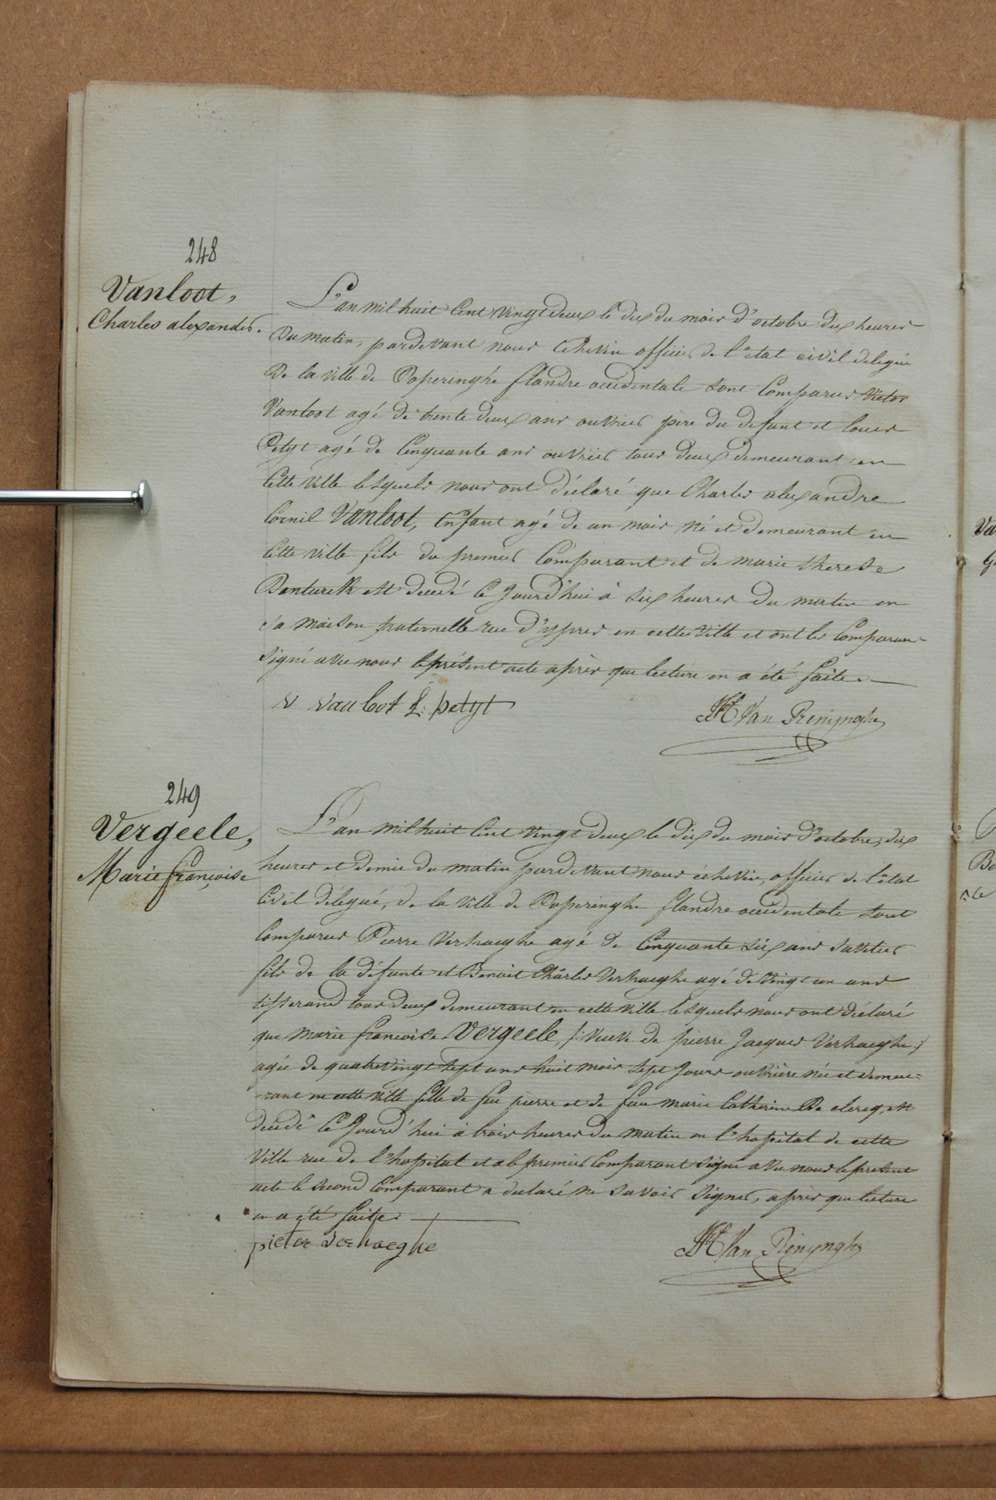 248
Vanloot,
Charles alexandre.
L'an mil huit Cent vingt deux le dix du mois d'octobre dix heures
du matin, pardevant nous Echevin officier de l'état civil delegué
De la ville de Poperinghe flandre occidentale sont Comparus Victor
Vanloot agé de trente deux ans ouvrier père du defunt et Louis
Petyt agé de Cinquante ans ouvrier tous deux demeurant en
Cette ville lesquels nous ont déclaré que Charles alexandre
Cornil Vanloot, Enfant agé de un mois né et demeurant en
Cette ville fils du premier Comparant et de marie therese
est decedé le Jourd'hui à six heures du matin en
sa maison paternelle rue d'ypres en cette ville et ont les Comparans
signé avec nous le présent acte après que lecture en a été faite.
v vanloot L: petyt
Van Renynghe
249
Vergeele,
Marie françoise
L'an mil huit Cent vingt deux le dix du mois d'octobre, dix
heures et demie du matin pardevant nous echevin, officier de l'état
Civil délegué, de la ville de Poperinghe flandre occidentale sont
Comparus Pierre Verhaeghe agé de Cinquante six ans
fils de la défunte et Benoit Charles Verhaeghe agé de Vingt un ans
tisserand tous deux demeurant en cette ville lesquels nous ont déclaré
que marie francoise Vergeele /: veuve de pierre Jacques Verhaeghe :/
agée de quatre vingt sept ans huit mois sept Jours ouvrière née et demeu-
-rant en cette ville fille de feu pierre et de feue marie Catherine De clercq, est
decedé le Jourd'hui à trois heures du matin en l'hopital de cette
Ville rue de l'hopital et a le premier Comparant signé avec nous le présent
acte le second Comparant a declaré ne savoir signer, après que lecture
en a été faite.
pieter verhaeghe
Van Renynghe
Va